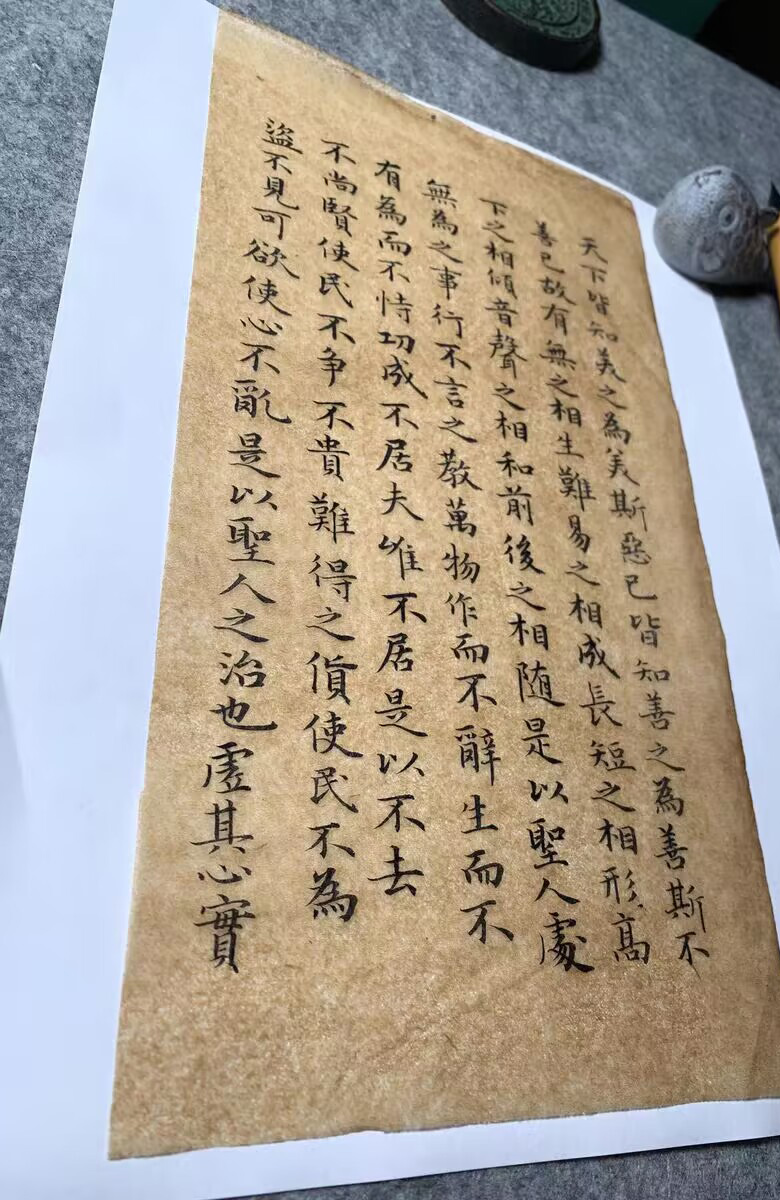 天下皆知美之為美斯惡已皆知善之為善斯不
善已故有無之相生難易之相成長短之相形高
下之相傾音聲之相和前後之相隨是以聖人處
無為之事行不言之教萬物作而不辭生而不
有為而不恃功成不居夫唯不居是以不去
不尚賢使民不争不貴難得之貨使民不為
盜不見可欲使心不亂是以聖人之治也虛其心實